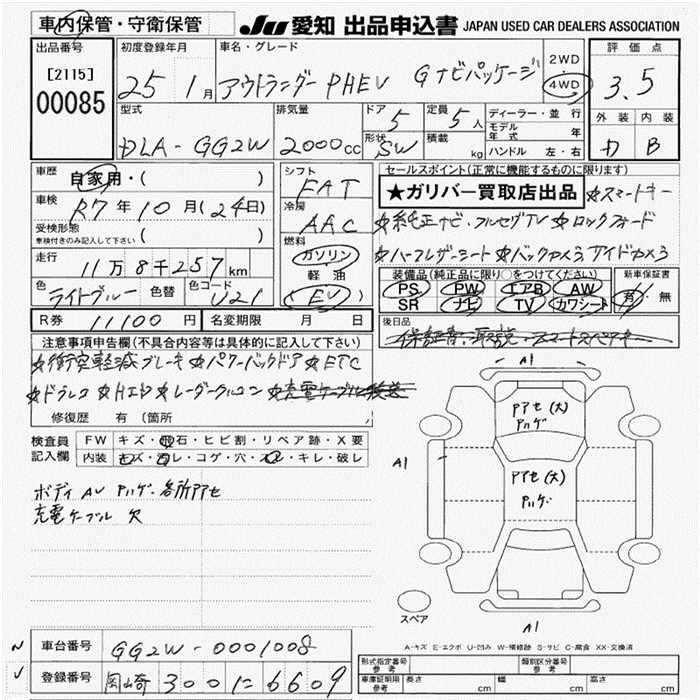 車内保管・守衛保管 JU 愛知 出品申込書 JAPAN USED CAR DEALERS ASSOCIATION
出品番号 初度登録年月 車名・グレード 評価点
[2115] 25 1月 アウトランダーPHEV Gナビパッケージ 2WD 4WD 3.5
00085
型式 排気量 ドア 定員 ディーラー・並行 外装 内装
DLA-GG2W 2000cc 5 5人 モデル年式 年 B
形状 SW 積載 kg ハンドル 左・右
車歴 自家用・( ) シフト FAT セールスポイント(正常に機能するものに限ります)
車検 R7年10月(24日) 冷房 AAC ★ガリバー買取店出品 ☆スマートキー
受検形態 車検付きのみ記入して下さい ( ) ☆純正ナビ・フルセグTV ☆ロックフォード
燃料 ガソリン・軽油 (EV) ☆ハーフレザーシート ☆バックカメラ サイドカメラ
走行 11万8千257km 装備品(純正品に限り○をつけてください) 新車保証書
色 ライトブルー 色替 色コード U21 PS PW エアB AW 有・無
SR ナビ TV カワシート
R券 11100円 名変期限 月 日 後日品
注意事項申告欄(不具合内容等は具体的に記入して下さい)
☆衝突軽減ブレーキ ☆パワーバックドア ☆ETC
☆ドラレコ ☆レーダークルコン
修復歴 有 (箇所
検査員記入欄 FW キズ・飛石・ヒビ割・リペア跡・X要
内装 キズ・汚レ・コゲ・穴・スレ・キレ・破レ
ボディ AU Pハゲ・各所Pアセ
充電ケーブル 欠
A1
Pアセ(大)
Pハゲ
A1
Pアセ(大)
Pハゲ
A1
スペア
A-キズ E-エクボ U-凹み W-補修跡 S-サビ C-腐食 XX-交換済
車台番号 GG2W-0001008
登録番号 岡崎 300 に 6609
形式指定番号 参考 類別区分番号 参考
車庫証明用 参考 長さ cm 幅 cm 高さ cm